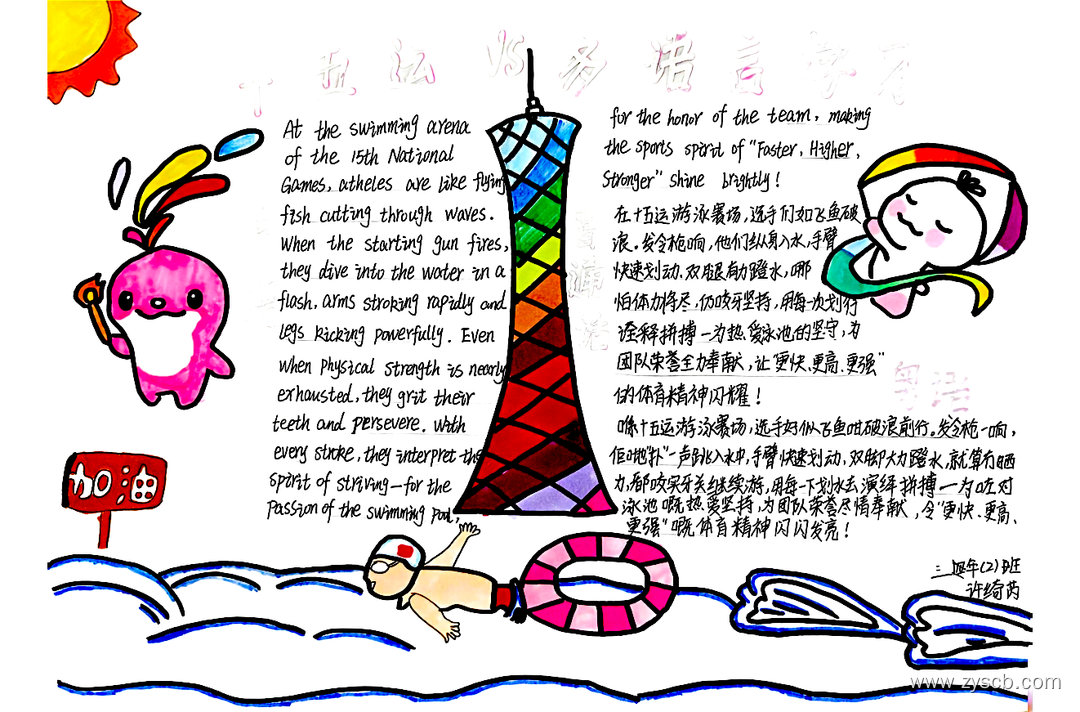 VS 多语言学习
At the swimming arena
of the 15th National
Games, atheles are like flying
fish cutting through waves.
When the starting gun fires,
they dive into the water in a
flash, arms stroking rapidly and
legs kicking powerfully. Even
when physical strength is nearly
exhausted, they grit their
teeth and persevere. With
every stroke, they interpret the
spirit of striving—for the
passion of the swimming pool,
for the honor of the team, making
the sports spirit of "Faster, Higher,
Stronger" shine brightly!
在十五运游泳赛场,选手们如飞鱼破
浪。发令枪响,他们纵身入水,手臂
快速划动,双腿有力蹬水,哪
怕体力将尽,仍咬牙坚持,用每一次划行
诠释拼搏—为热爱泳池的坚守,为
团队荣誉全力奉献,让"更快、更高、更强"
的体育精神闪耀!
喺十五运游泳赛场,选手好似飞鱼咁破浪前行。发令枪一响,
佢哋"扑"一声跳入水中,手臂快速划动,双脚大力蹬水,就算冇晒
力,都咬实牙关继续游,用每一下划水去演绎拼搏—为咗对
泳池嘅热爱坚持,为团队荣誉尽情奉献,令"更快、更高、
更强"嘅体育精神闪闪发亮!
粤语
加油
(2)班
许绮芮
www.zyscb.com